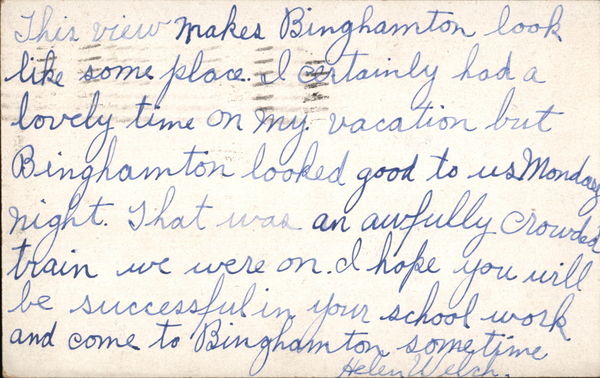 This view makes Binghamton look
like some place. I certainly had a
lovely time on my vacation but
Binghamton looked good to us Monday
night. That was an awfully crowded
train we were on. I hope you will
be successful in your school work
and come to Binghamton sometime
Helen Welch.